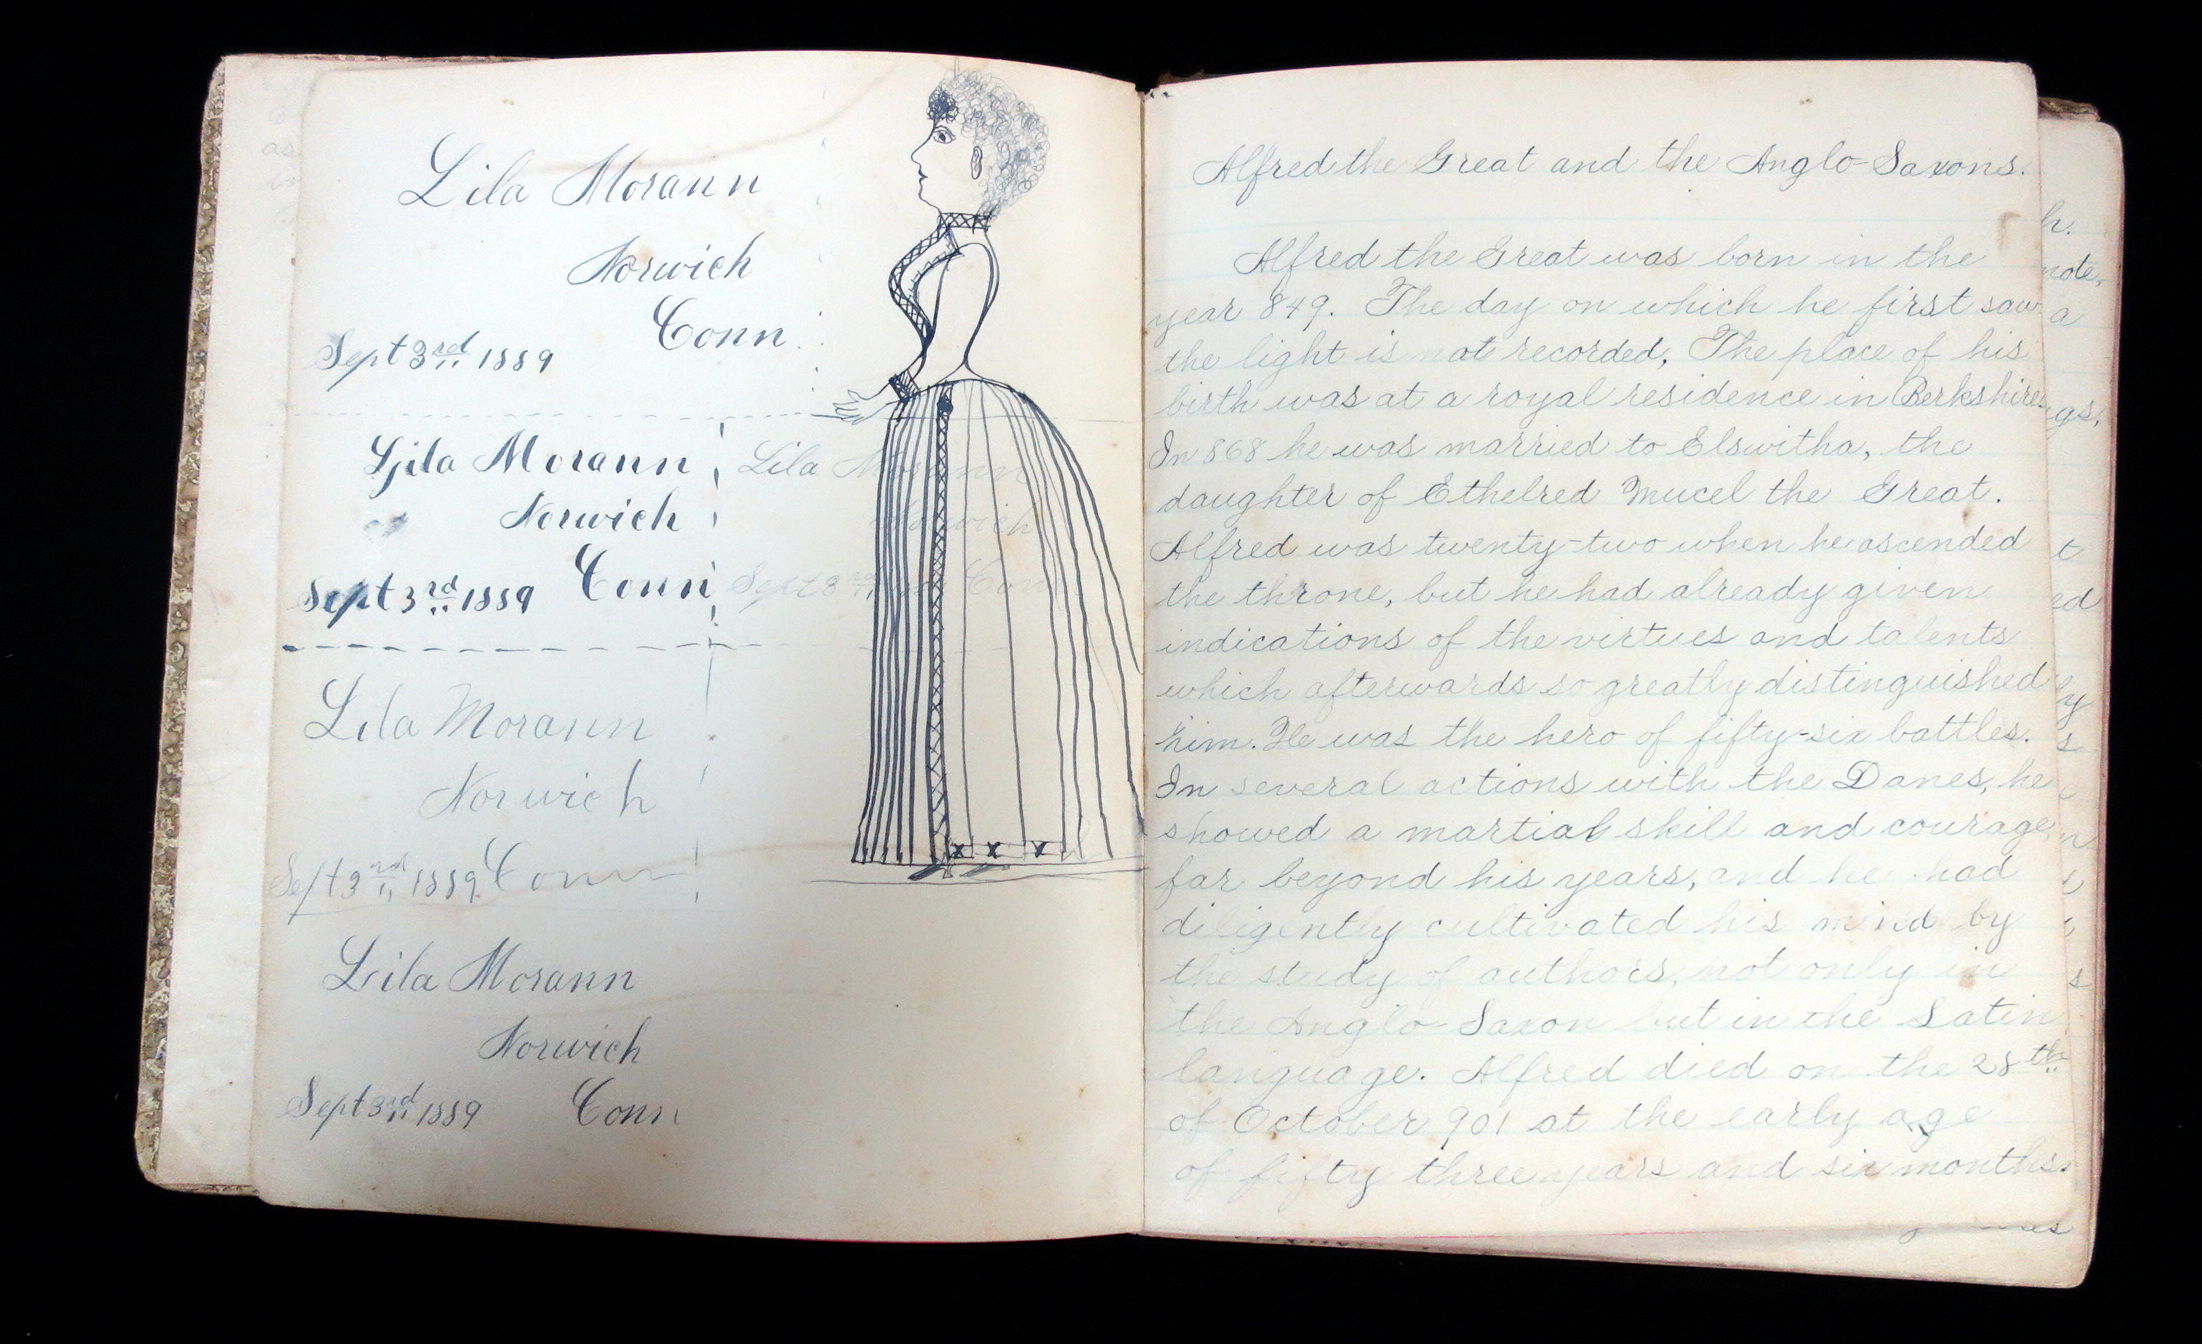 Lila Morann
Norwich
Conn
Sept 3rd 1889
Lila Morann
Norwich
Conn
Sept 3rd 1889
Lila Morann
Norwich
Sept 3rd Conn
Lila Morann
Norwich
Conn
Sept 3rd 1889
Lila Morann
Norwich
Conn
Sept 3rd 1889
Alfred the Great and the Anglo-Saxons.
Alfred the Great was born in the
year 849. The day on which he first saw
the light is not recorded, The place of his
birth was at a royal residence in Berkshire.
In 868 he was married to Elswitha, the
daughter of Ethelred Mucel the Great.
Alfred was twenty-two when he ascended
the throne, but he had already given
indications of the virtues and talents
which afterwards so greatly distinguished
him. He was the hero of fifty-six battles.
In several actions with the Danes, he
showed a martial skill and courage,
far beyond his years, and he had
diligently cultivated his mind by
the study of authors, not only in
the Anglo-Saxon but in the Latin
language. Alfred died on the 28th
of October 901 at the early age
of fifty three years and six months.